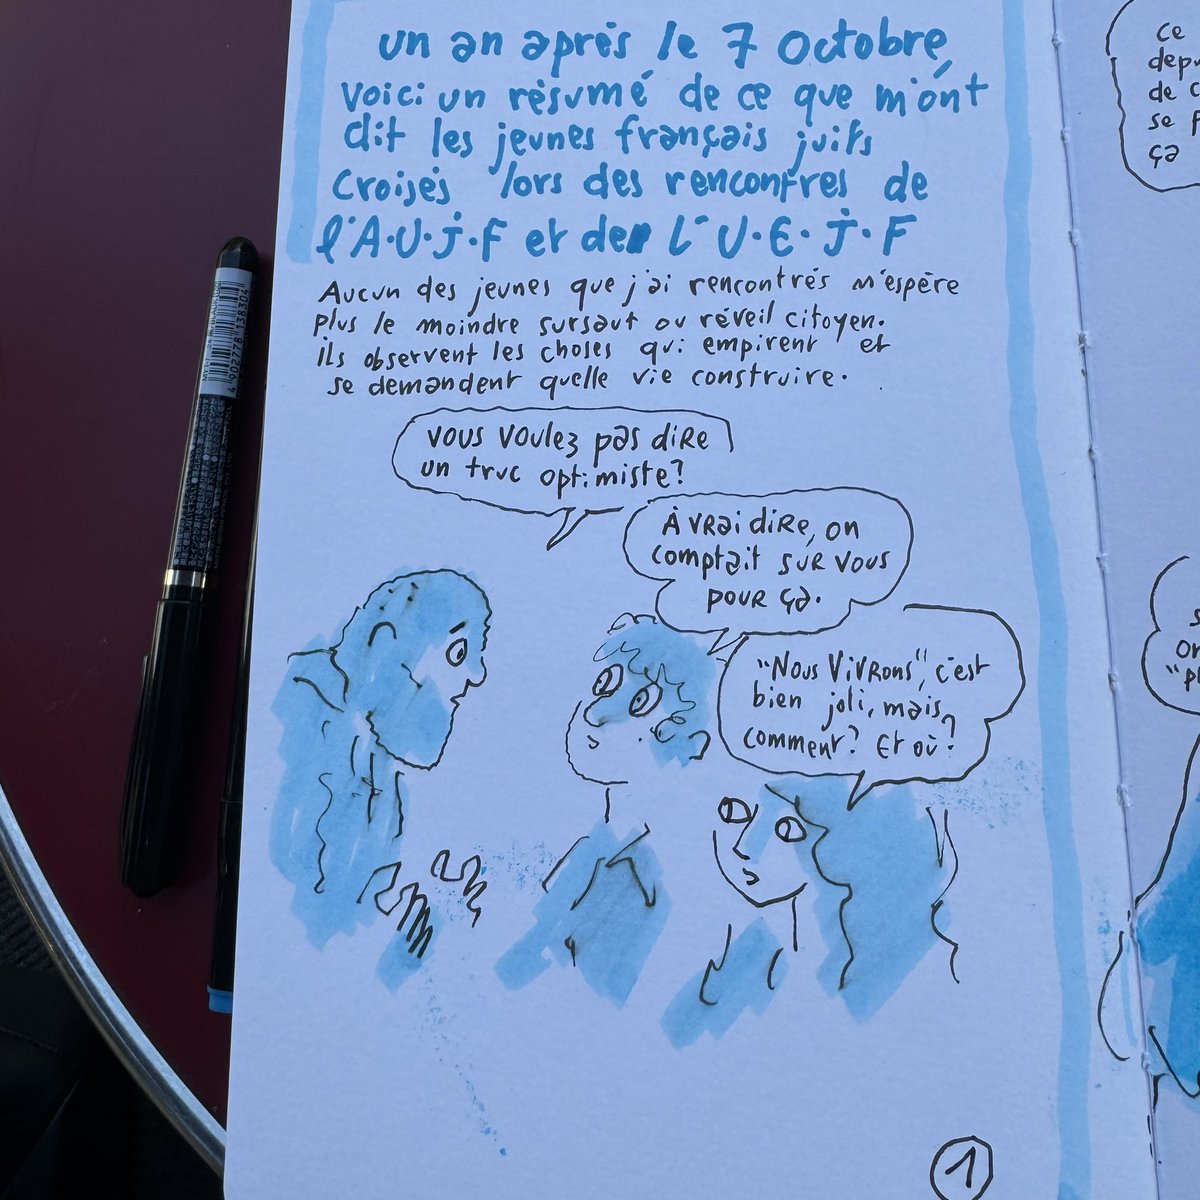 un an après le 7 octobre,
voici un résumé de ce que m'ont
dit les jeunes français juifs
croisés lors des rencontres de
l'A.U.J.F et de L'U.E.J.F
Aucun des jeunes que j'ai rencontrés n'espère
plus le moindre sursaut ou réveil citoyen.
ils observent les choses qui empirent et
se demandent quelle vie construire.
vous voulez pas dire
un truc optimiste?
À vrai dire, on
comptait sur vous
pour ça.
"Nous vivrons", c'est
bien joli, mais
comment? Et où?
1
ce
de
se
ça
4 902778 138304